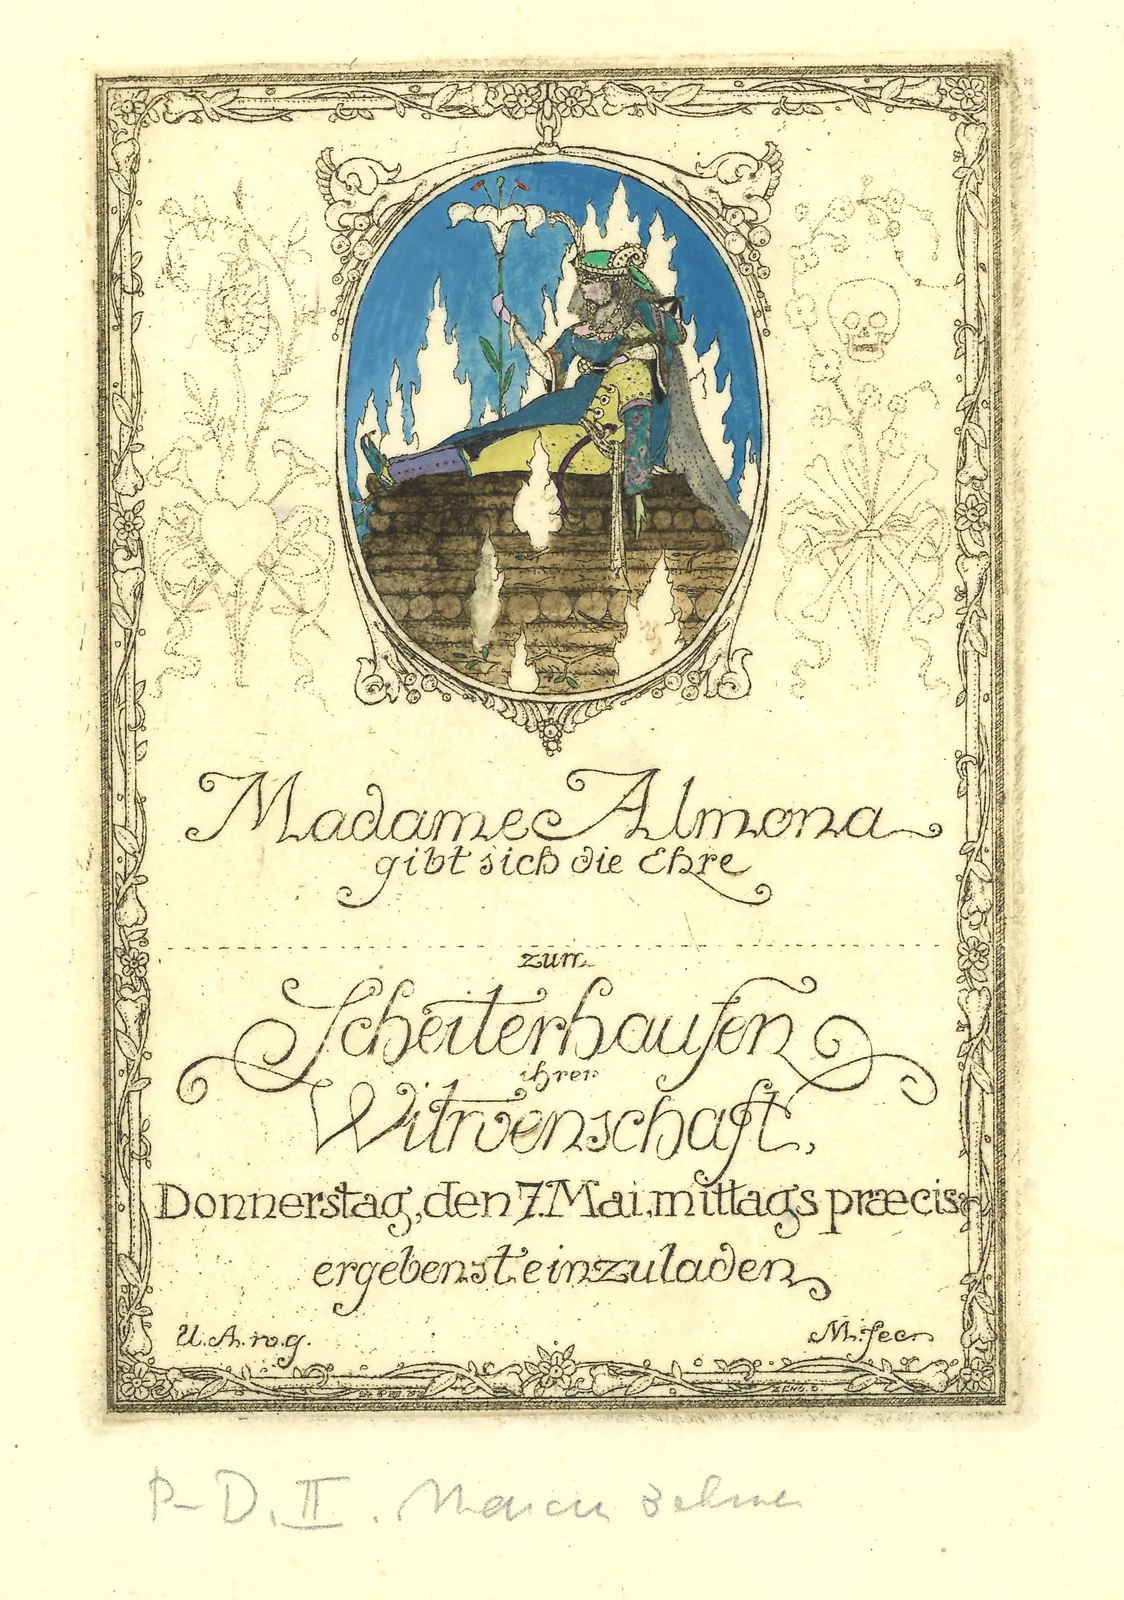 Madame Almona
gibt sich die Ehre
zum
Scheiterhaufen
ihrer
Witwenschaft,
Donnerstag, den 7. Mai, mittags præcise
ergebenst einzuladen
U. A. w. g.
M. fec.
P-D. II. Marcus Behmer